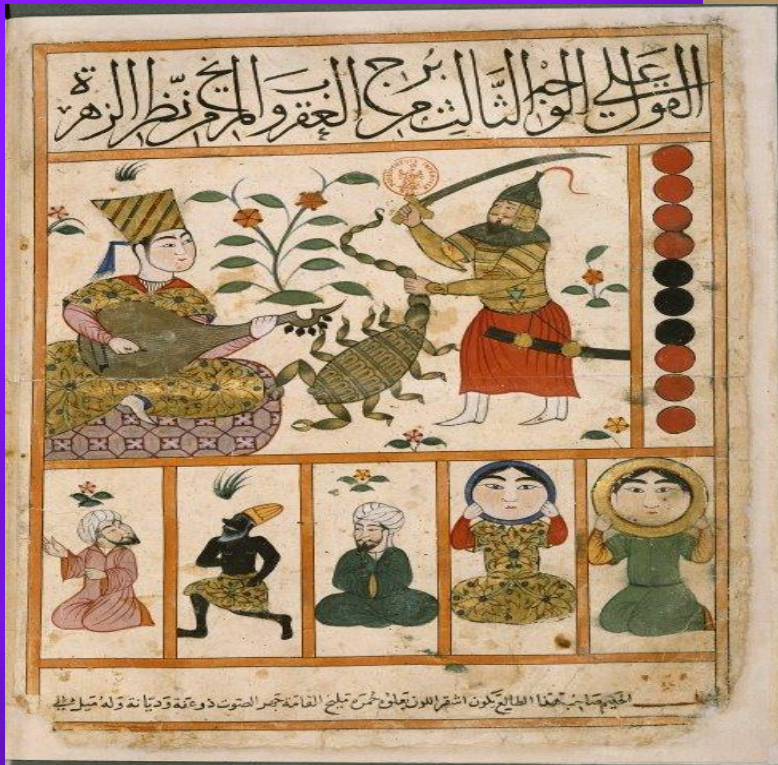 القول علي الوجه الثَّالث من برج العقرب والمريخ من نظر الزهرة
الحكيم صاحب هذا الطالع يكون اشقر اللون تعلوه حمرة مليح القامة جهر الصوت ذو عفة وديانة وله ميل في